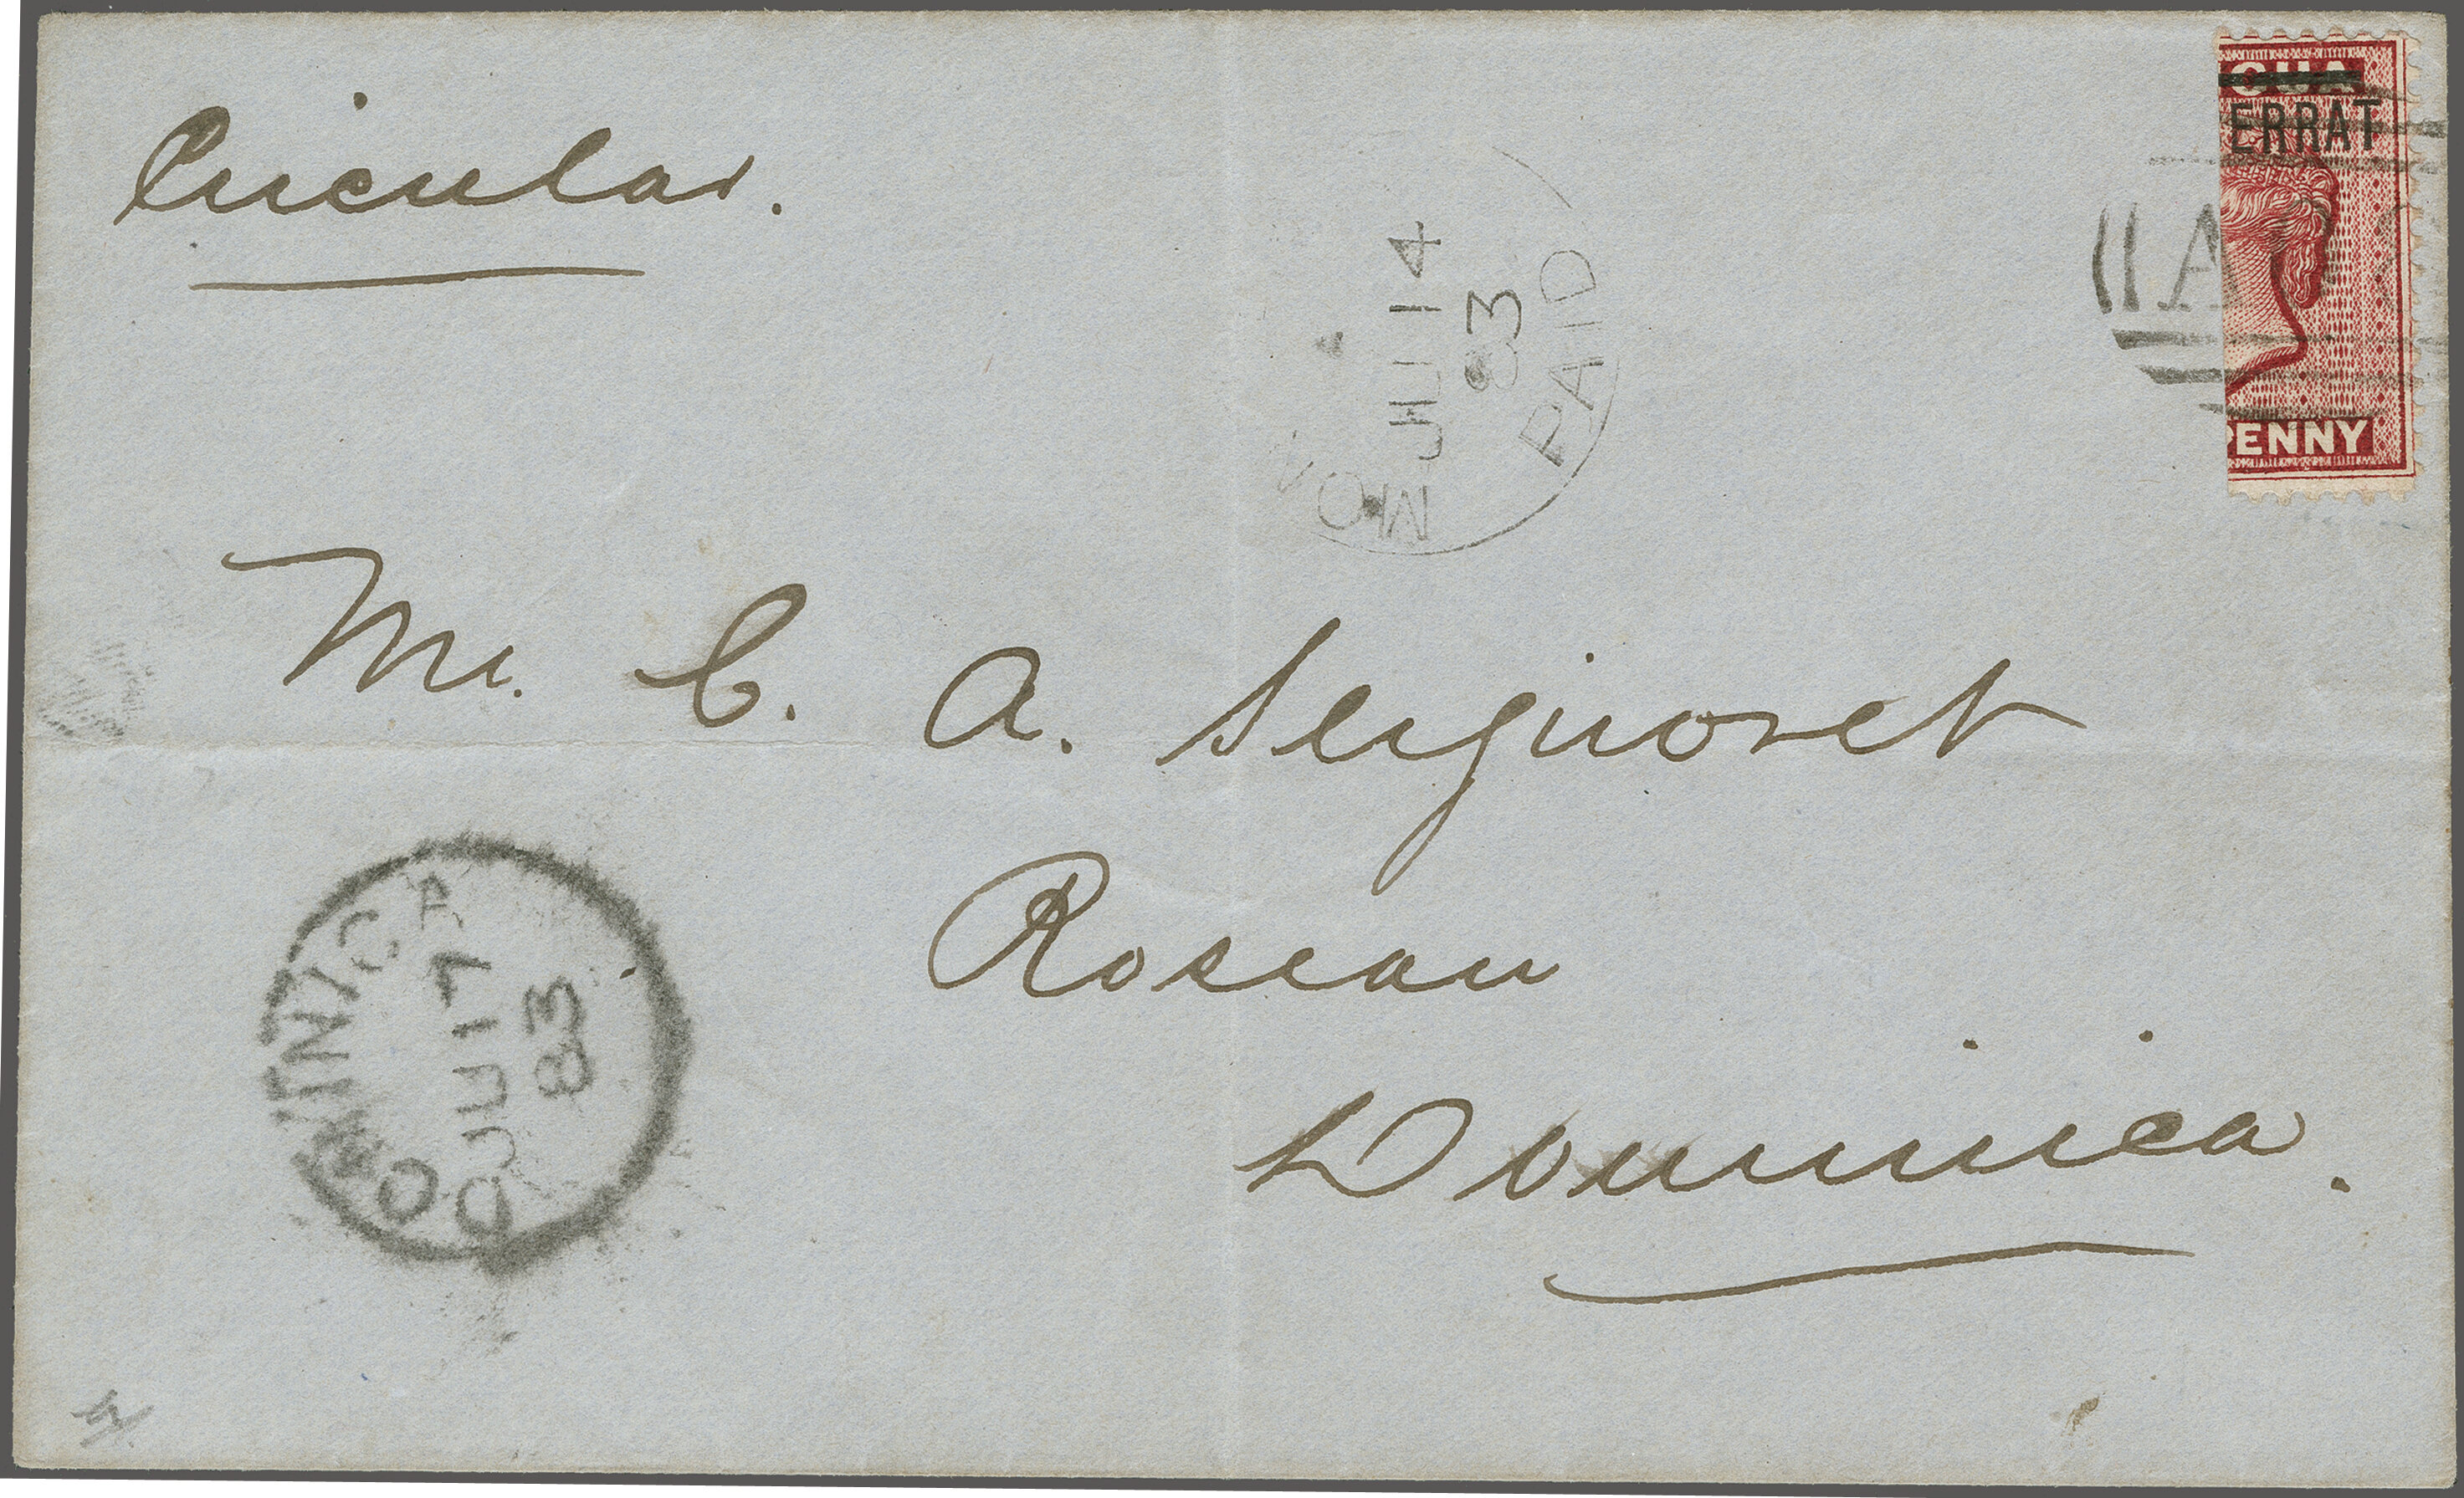 Circular.
GUA
ERRAT
PENNY
A
JU 14
83
PAID
Mr. C. A. Seignoret
Roseau
Dominica.
DOMINICA
JU 17
83